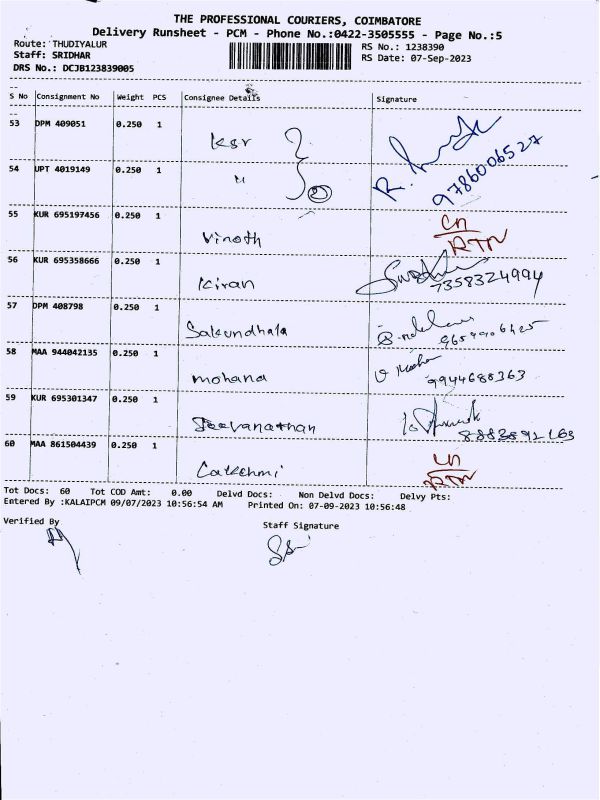 THE PROFESSIONAL COURIERS, COIMBATORE
Delivery Runsheet - PCM - Phone No.:0422-3505555 - Page No.:5
Route: THUDIYALUR
RS No.: 1238390
Staff: SRIDHAR
RS Date: 07-Sep-2023
DRS No.: DCJB123839005
S No Consignment No Weight PCS Consignee Details Signature
53 DPM 409051 0.250 1 KSR
54 UPT 4019149 0.250 1 " 2 9786006527
55 KUR 695197456 0.250 1 Vinoth CN RTN
56 KUR 695358666 0.250 1 Kiran 7358324994
57 DPM 408798 0.250 1 Sakundhala
58 MAA 944042135 0.250 1 mohana 9944688363
59 KUR 695301347 0.250 1 Jeevanathan
60 MAA 861504439 0.250 1 RTN
Tot Docs: 60 Tot COD Amt: 0.00 Delvd Docs: Non Delvd Docs: Delvy Pts:
Entered By :KALAIPCM 09/07/2023 10:56:54 AM Printed On: 07-09-2023 10:56:48
Verified By
Staff Signature